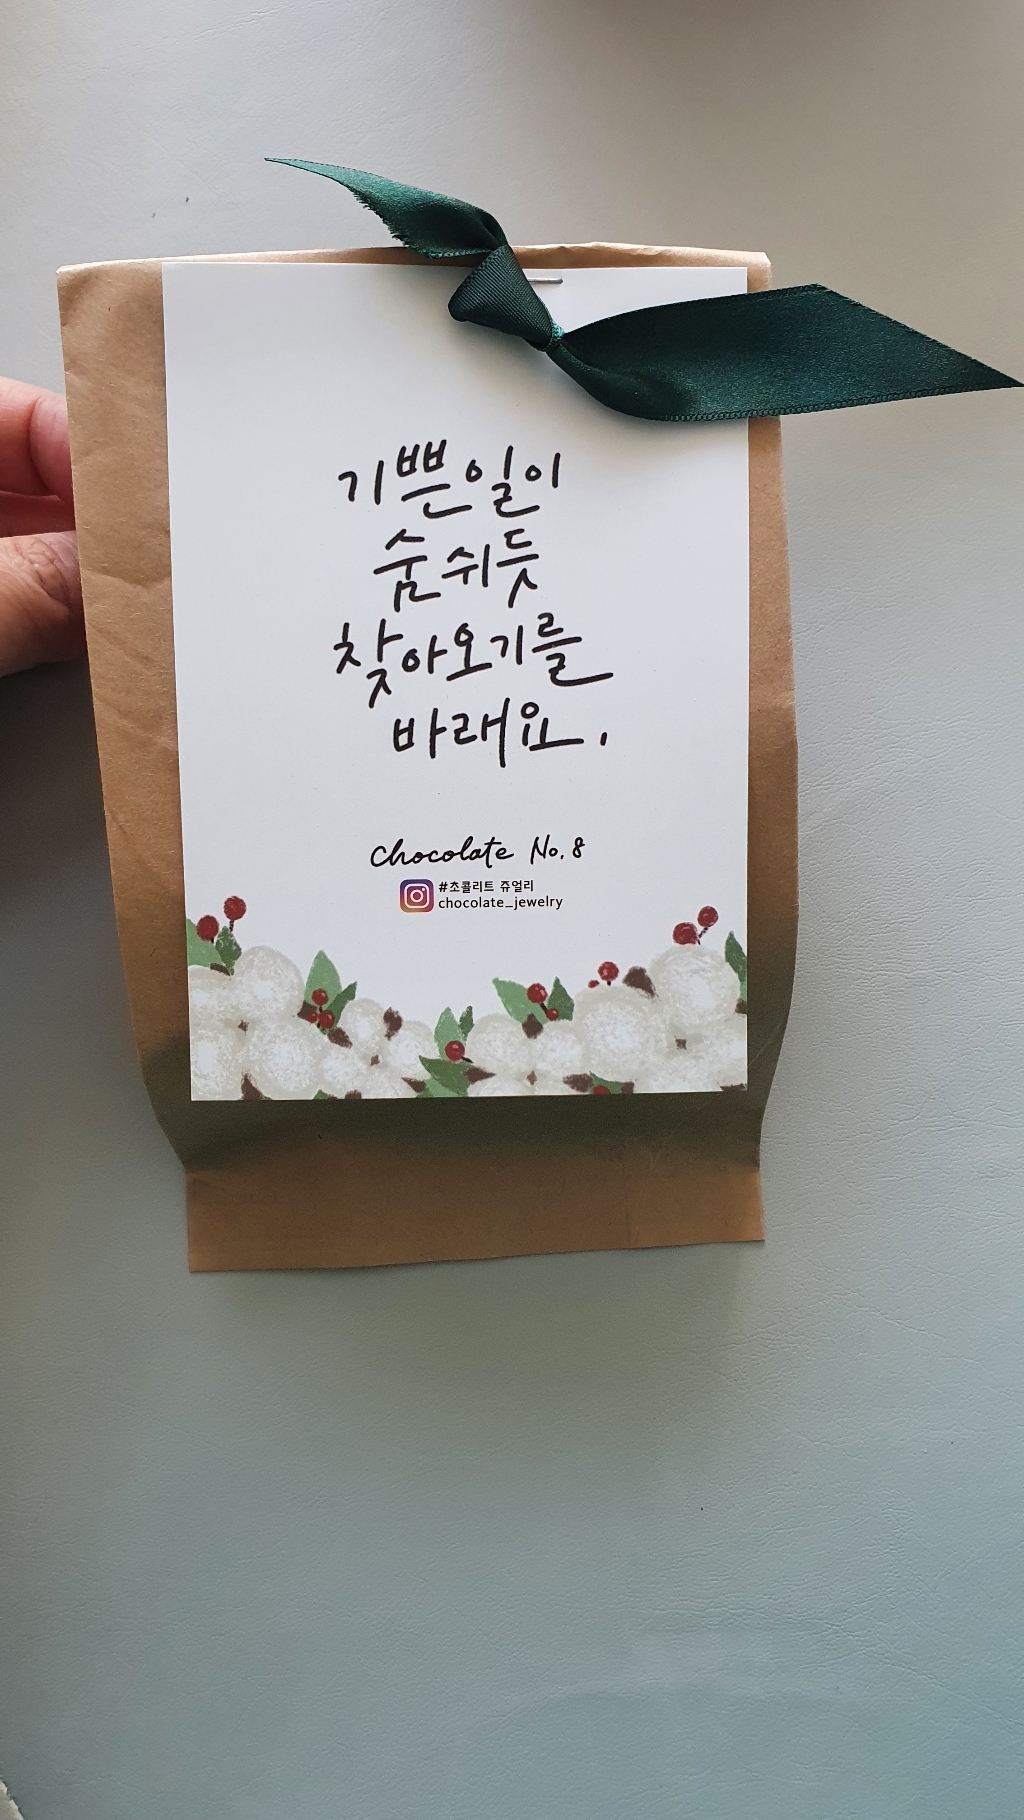 기쁜 일이
숨 쉬듯
찾아오기를
바래요.
Chocolate No. 8
#초콜리트 쥬얼리
chocolate_jewelry